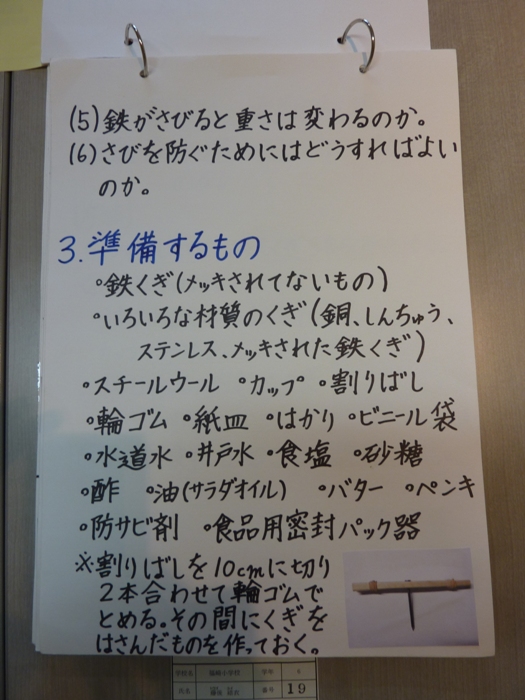 (5)鉄がさびると重さは変わるのか。
(6)さびを防ぐためにはどうすればよい
のか。
3.準備するもの
°鉄くぎ(メッキされてないもの)
°いろいろな材質のくぎ(銅、しんちゅう、
ステンレス、メッキされた鉄くぎ)
°スチールウール °カップ °割りばし
°輪ゴム °紙皿 °はかり °ビニール袋
°水道水 °井戸水 °食塩 °砂糖
°酢 °油(サラダオイル) °バター °ペンキ
°防サビ剤 °食品用密封パック器
※割りばしを10cmに切り
2本合わせて輪ゴムで
とめる。その間にくぎを
はさんだものを作っておく。
学校名 小学校 学年 6
氏名 番号 19